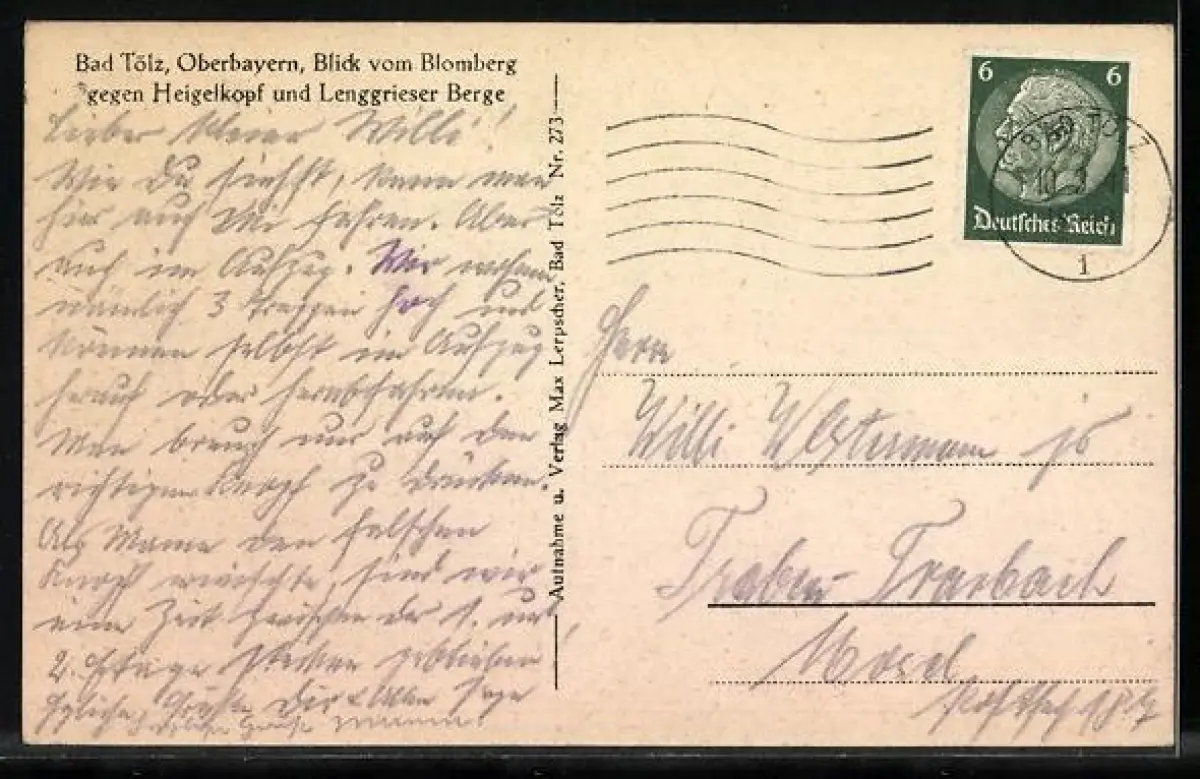 Bad Tölz, Oberbayern, Blick vom Blomberg
gegen Heigelkopf und Lenggrieser Berge
Lieber kleiner Willi!
Wie Du siehst, kann man
hier auch Ski fahren. Aber
auch im Aufzug. Wir wohnen
nämlich 3 Treppen hoch und
können selbst im Aufzug
herauf oder herabfahren.
Man brauch nur auf den
richtigen Knopf zu drücken.
Als Mama den falschen
Knopf erwischte, sind wir
eine Zeit zwischen der 1. und
2. Etage stecken geblieben
Herzliche Grüße Dir & Allen
Grüße
Aufnahme u. Verlag Max Lerpscher, Bad Tölz Nr. 273
6 6
Deutsches Reich
BAD TÖLZ
1
Herrn
Willi Westermann jr
Traben-Trarbach
Mosel
Postfach